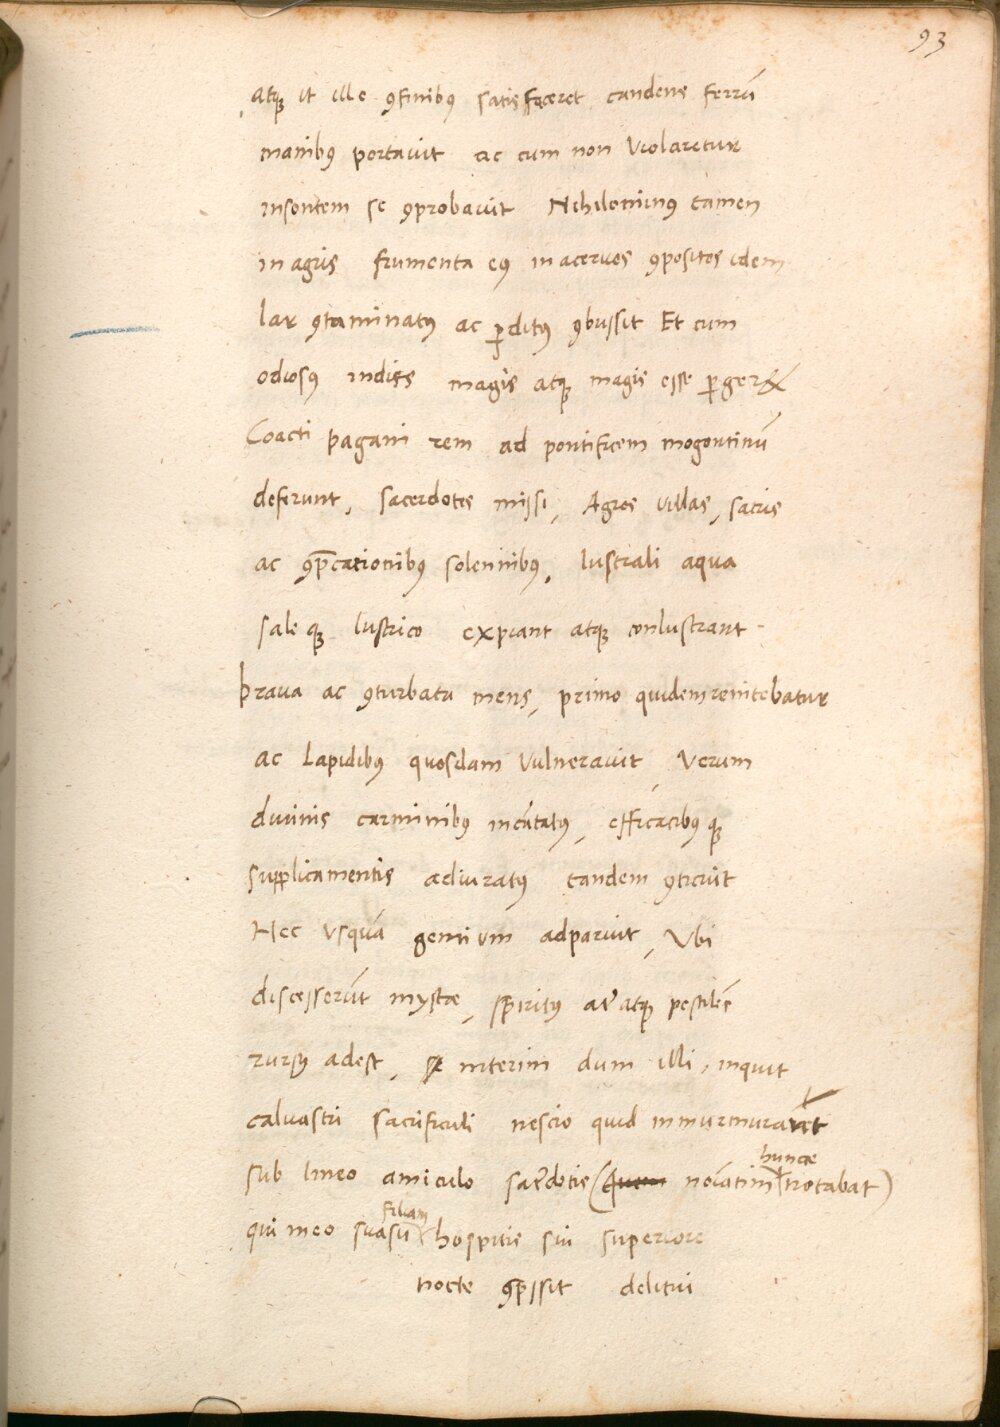 93
atqꝫ ut ille ꝯfinibꝰ satisfaceret candens ferrū
manibꝰ portavit ac cum non violaretur
insontem se ꝯprobavit Nihilominꝰ tamen
in agris frumenta eiꝰ in acervos ꝯpositos idem
lar ꝯtaminatꝰ ac ꝑditꝰ ꝯbussit Et cum
odiosꝰ indies magis atqꝫ magis esse ꝑger&
Coacti pagani rem ad pontificem mogontinū
deferunt, sacerdotes missi, Agros villas, sacris
ac ꝯp̄cationibꝰ solennibꝰ, lustrali aqua
sale qꝫ lustrico expiant atqꝫ conlustrant
prava ac ꝯturbata mens, primo quidem renitebatur
ac Lapidibꝰ quosdam vulneravit, verum
divinis carminibꝰ incātatꝰ, efficacibꝰ qꝫ
supplicamentis adiuratꝰ tandem ꝯticuit
Nec usquā genium adparuit, Vbi
discesserūt mystæ, spiritꝰ atqꝫ pestilēs
rursꝰ adest, interim dum illi, inquit
calvastri sacrificuli nescio quid inmurmurarēt
sub lineo amiculo sacerdotis (quem nocātim huncce notabat)
qui meo suasu filiam hospitis sui superiore
nocte ꝯp̄ssit delitui